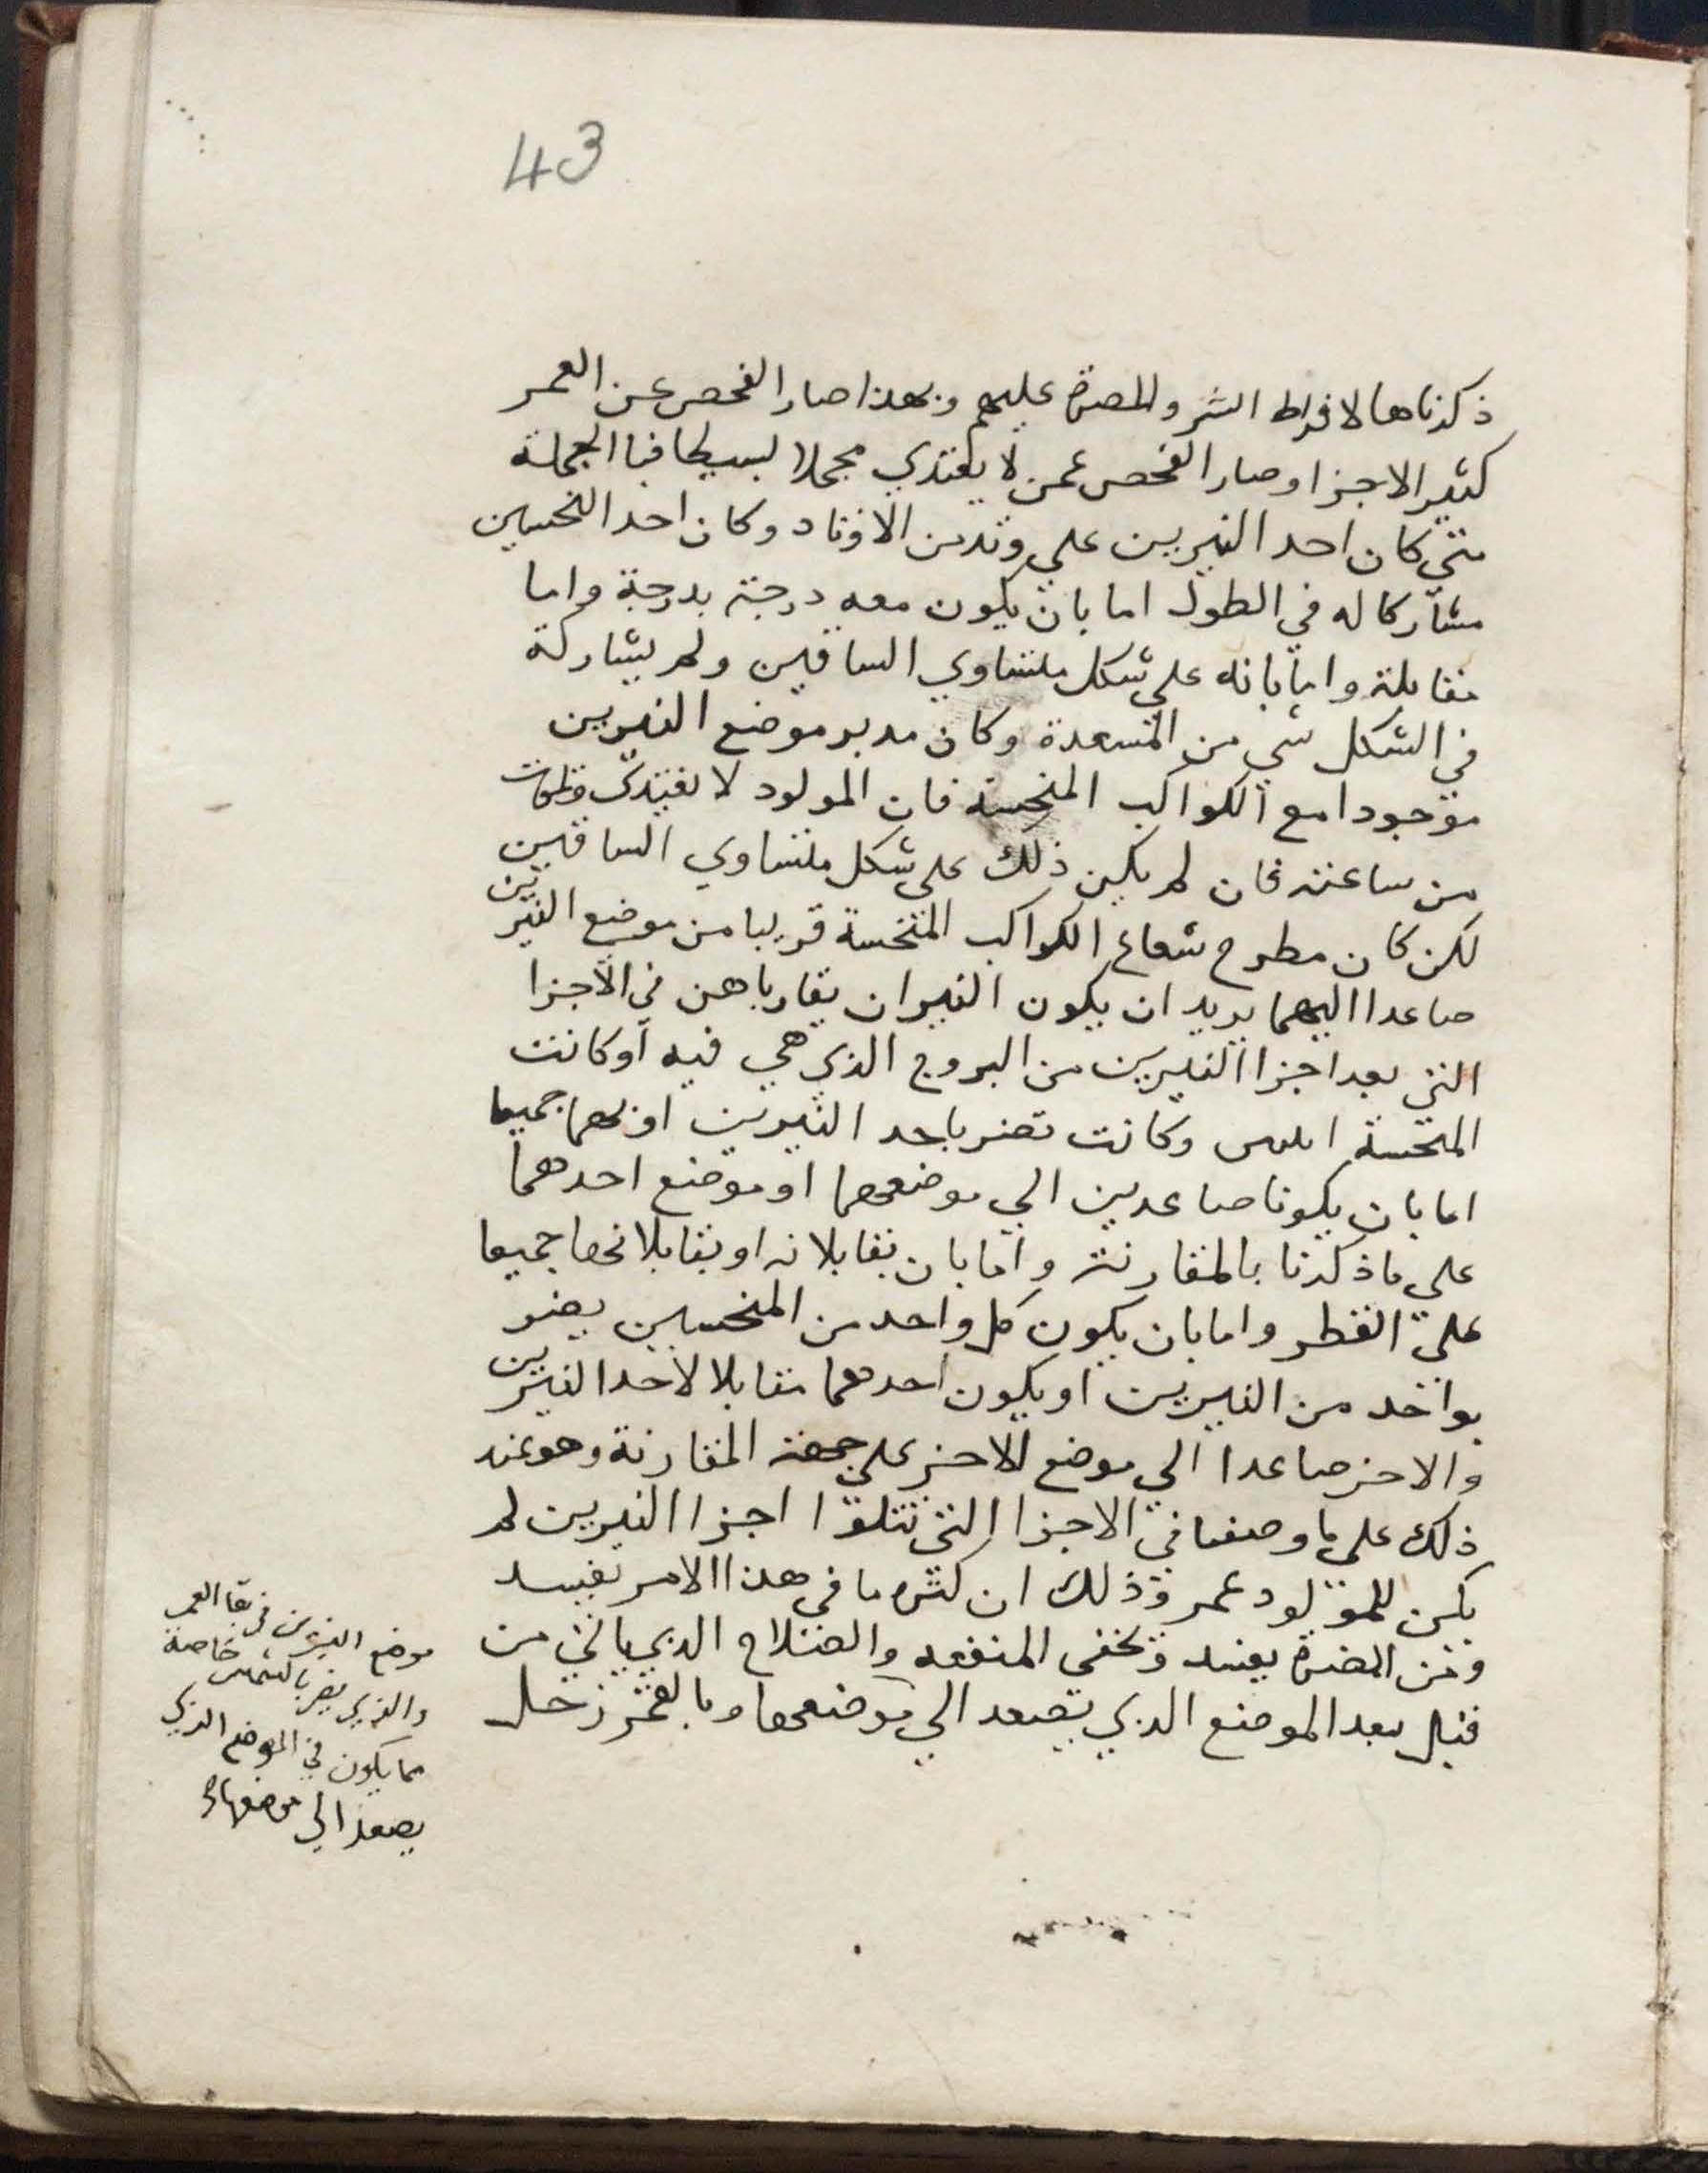 43
ذكرناها لافراط الشر والمضرة عليهم وبهذا صار الفحص عن العمر
كثير الاجزا وصار الفحص عمن لا يغتدي مجملا بسيطا فبا الجملة
متي كان احد النيرين علي وتد من الاوتاد وكان احد النحسين
مشاركا له في الطول اما بان يكون معه درجة بدرجة واما
مقابلة واما بانه علي شكل متساوي الساقين ولم يشاركه
في الشكل شي من المسعدة وكان مدبر موضع النيرين
موجودا مع الكواكب المنحسة فان المولود لا يغتدي ويموت
من ساعته فان لم يكن ذلك علي شكل متساوي الساقين
لكن كان مطرح شعاع الكواكب المنحسة قريبا من موضع النيرين
صاعدا اليهما يريد ان يكون النيران يقارباهن في الاجزا
التي بعد اجزا النيرين من البروج الذي هي فيه او كانت
المنحسة وكانت تضر باحد النيرين او بهما جميعا
اما بان يكونا صاعدين الي موضعهما او موضع احدهما
علي ما ذكرنا بالمقارنة واما بان يقابلانه او يقابلانهما جميعا
علي القطر واما بان يكون كل واحد من المنحسين يضر
بواحد من النيرين او يكون احدهما مقابلا لاحد النيرين
والاخر صاعدا الي موضع الاخر علي جهة المقارنة وهو عند
ذلك علي ما وصفنا في الاجزا التي تتلوا اجزا النيرين لم
يكن للمولود عمر وذلك ان كثره ما في هذا الامر يفسد
ومن المضرة يفسد وتخفي المنفعه والصلاح الذي ياتي من
قبل بعد الموضع الذي يصعد الي موضعها وبالقمر زحل
موضع النيرين في بقا العمر
والذي يضر بالشمس خاصة
مما يكون في الموضع الذي
يصعد الي موضعها